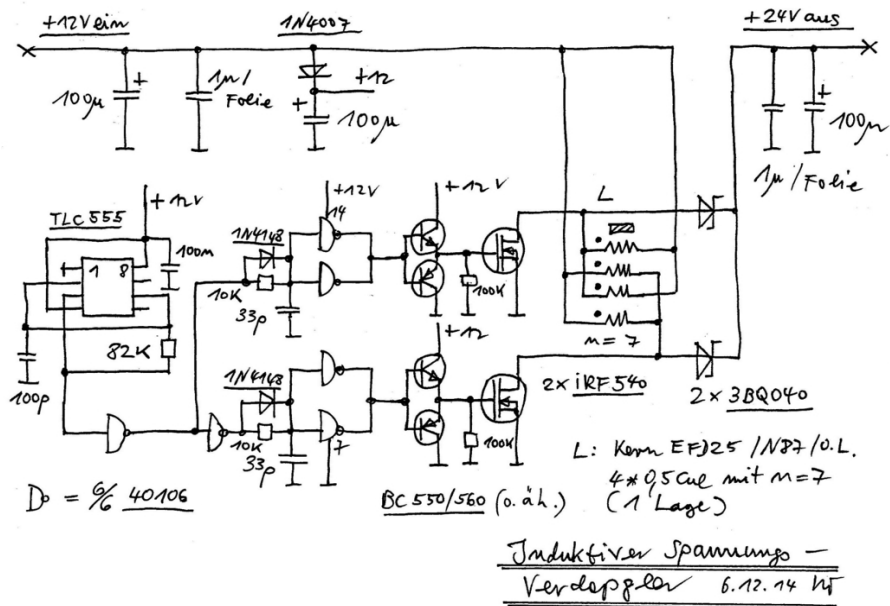 +12V ein
1N4007
+24V aus
+
100µ
1µ/
Folie
+12
+
100µ
+
100µ
1µ/Folie
TLC555
+12V
100n
1 8
82K
100p
1N4148
10K
33p
+12V
14
+12V
100K
L
n = 7
1N4148
10K
33p
7
+12
100K
2x iRF540
2 x 3BQ040
= 6/6 40106
BC550/560 (o. äh.)
L: Kern EFD25 /N87/o.L.
4*0,5 CuL mit n=7
(1 Lage)
Induktiver Spannungs-
Verdoppler 6.12.14